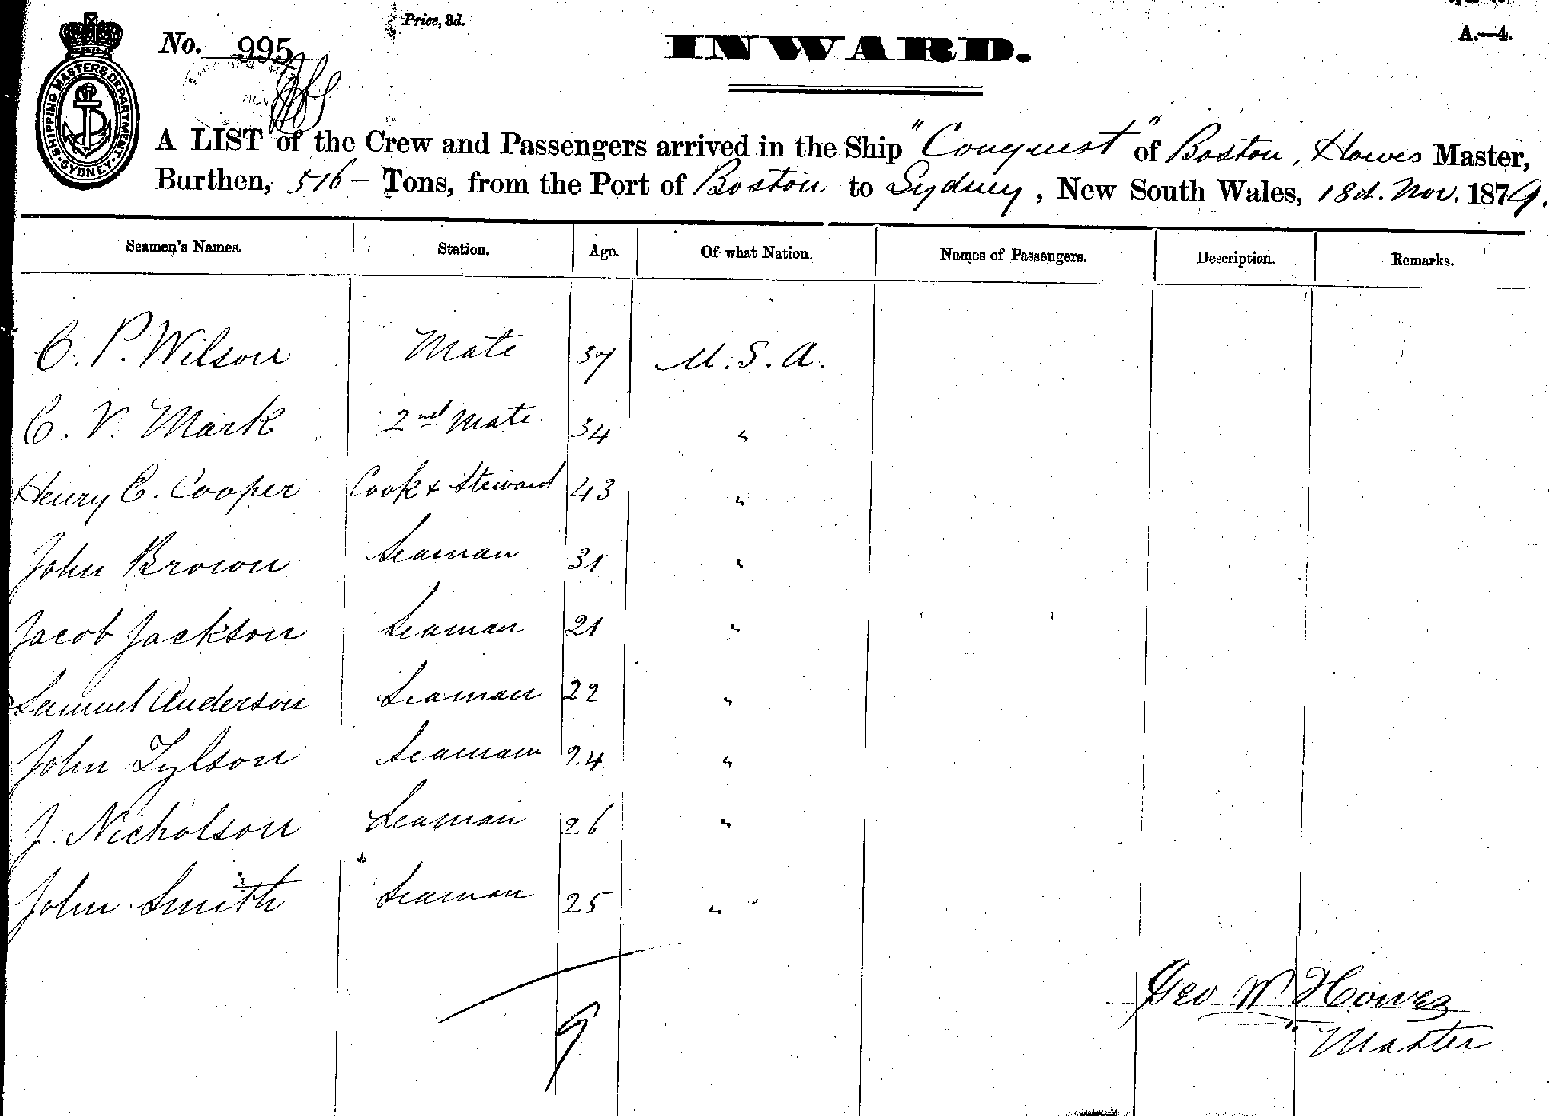 Price, 3d.
A.—4.
No. 995
INWARD.
SHIPPING MASTERS DEPARTMENT SYDNEY
A LIST of the Crew and Passengers arrived in the Ship "Conquest" of Boston, Howes Master,
Burthen, 516 – Tons, from the Port of Boston to Sydney, New South Wales, 18th Nov. 1879.
Seamen's Names. Station. Age. Of what Nation. Names of Passengers. Description. Remarks.
C. P. Wilson Mate 37 U.S.A.
C. V. Mark 2nd Mate 34 "
Henry C. Cooper Cook & Steward 43 "
John Brown Seaman 31 "
Jacob Jackson Seaman 21 "
Samuel Anderson Seaman 22 "
John Tylson Seaman 24 "
J. Nicholson Seaman 26 "
John Smith Seaman 25 "
9
Geo W Howes
Master